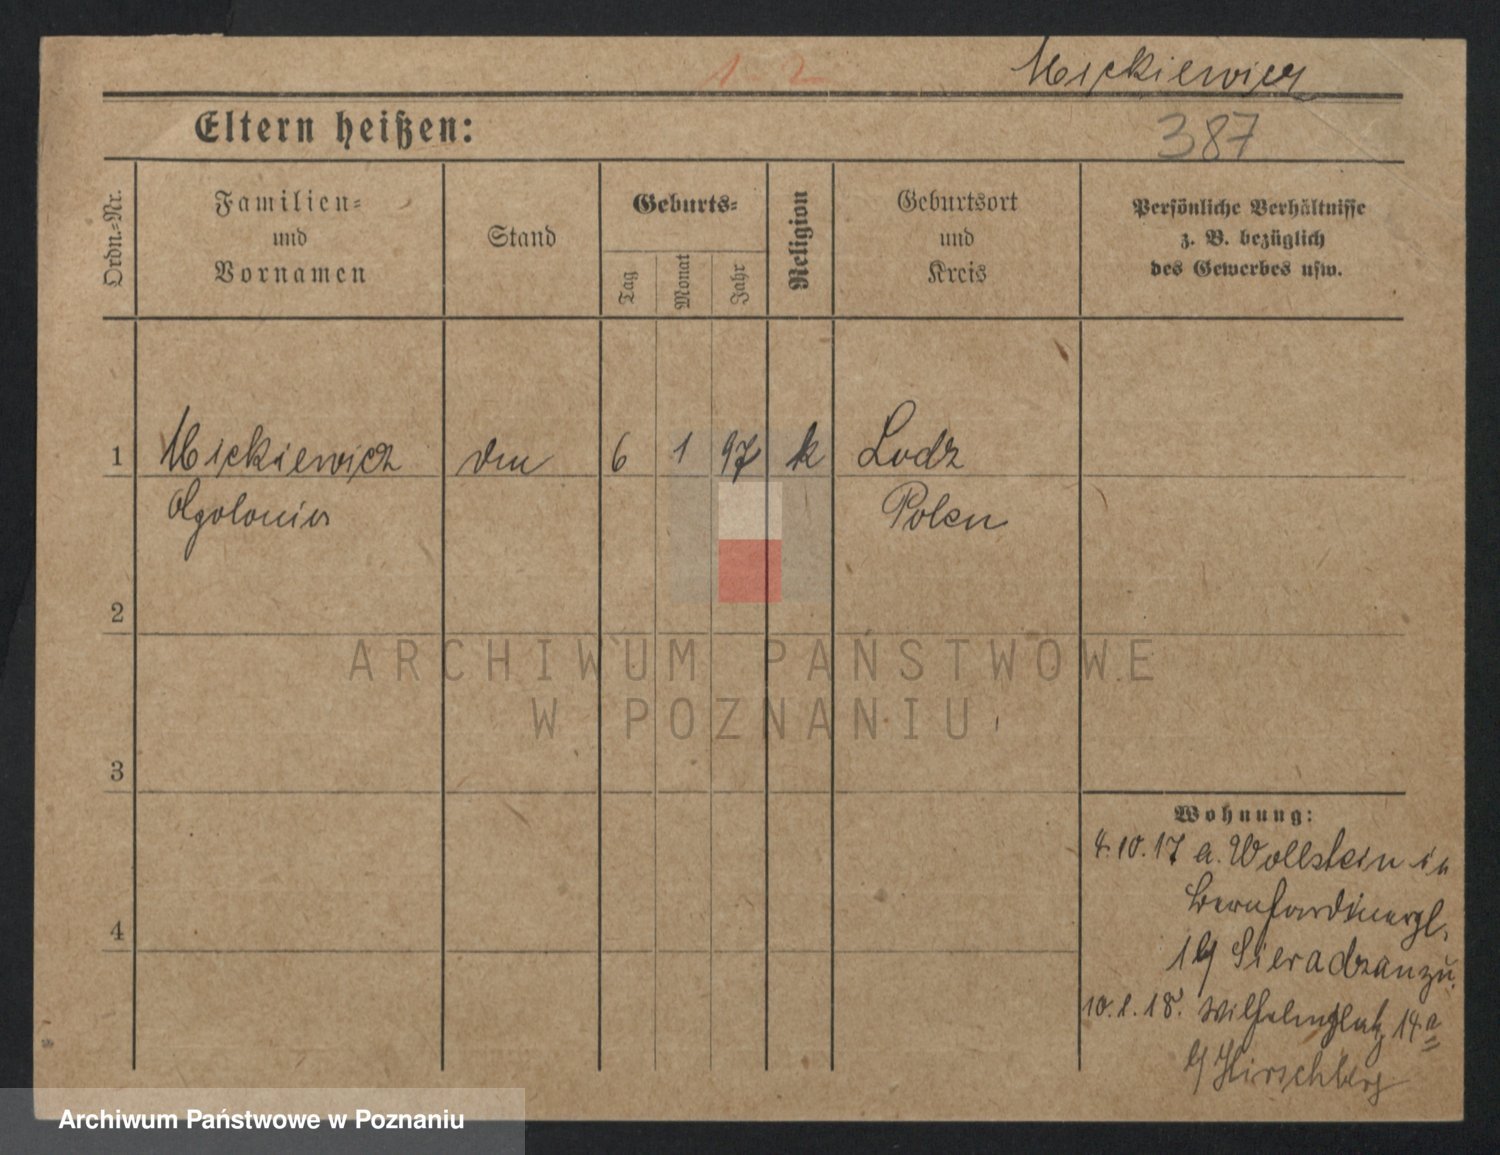 1-2
Mickiewicz
Eltern heißen:
387
Ordn.-Nr.
Familien-
und
Vornamen
Stand
Geburts-
Tag
Monat
Jahr
Religion
Geburtsort
und
Kreis
Persönliche Verhältnisse
z. B. bezüglich
des Gewerbes usw.
1 Mickiewicz 6 1 97 k Lodz
Apolonia Polen
2
3
4
Wohnung:
4.10.17 a. Wollstein in
Bernhardinerpl.
Sieradzan
10.1.18. Wilhelmplatz 14a
b/ Hirschberg
ARCHIWUM PAŃSTWOWE
W POZNANIU
Archiwum Państwowe w Poznaniu